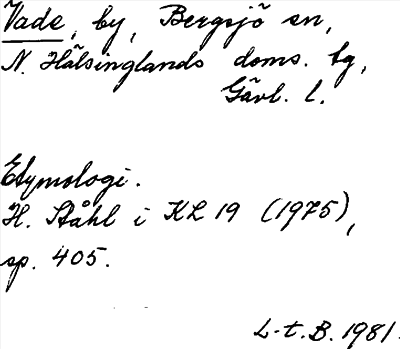 Vade, by, Bergsjö sn,
N. Hälsinglands doms. tg,
Gävl. l.
Etymologi.
H. Ståhl i KL 19 (1975),
sp. 405.
L-t.B. 1981.